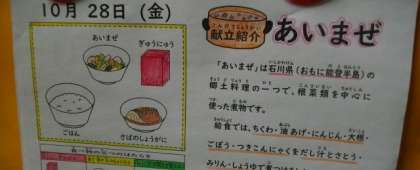 10月28日(金)
あいまぜ
ぎゅうにゅう
ごはん
さばのしょうが に
こんだてしょうかい
献立紹介
あいまぜ
「あいまぜ」は石川県(おもに能登半島)の
郷土料理の一つで、根菜類を中心に
使った煮物です。
給食では、ちくわ・油あげ・にんじん・大根・
ごぼう・つきこんにゃくをだし汁とさとう・
みりん・しょうゆで煮